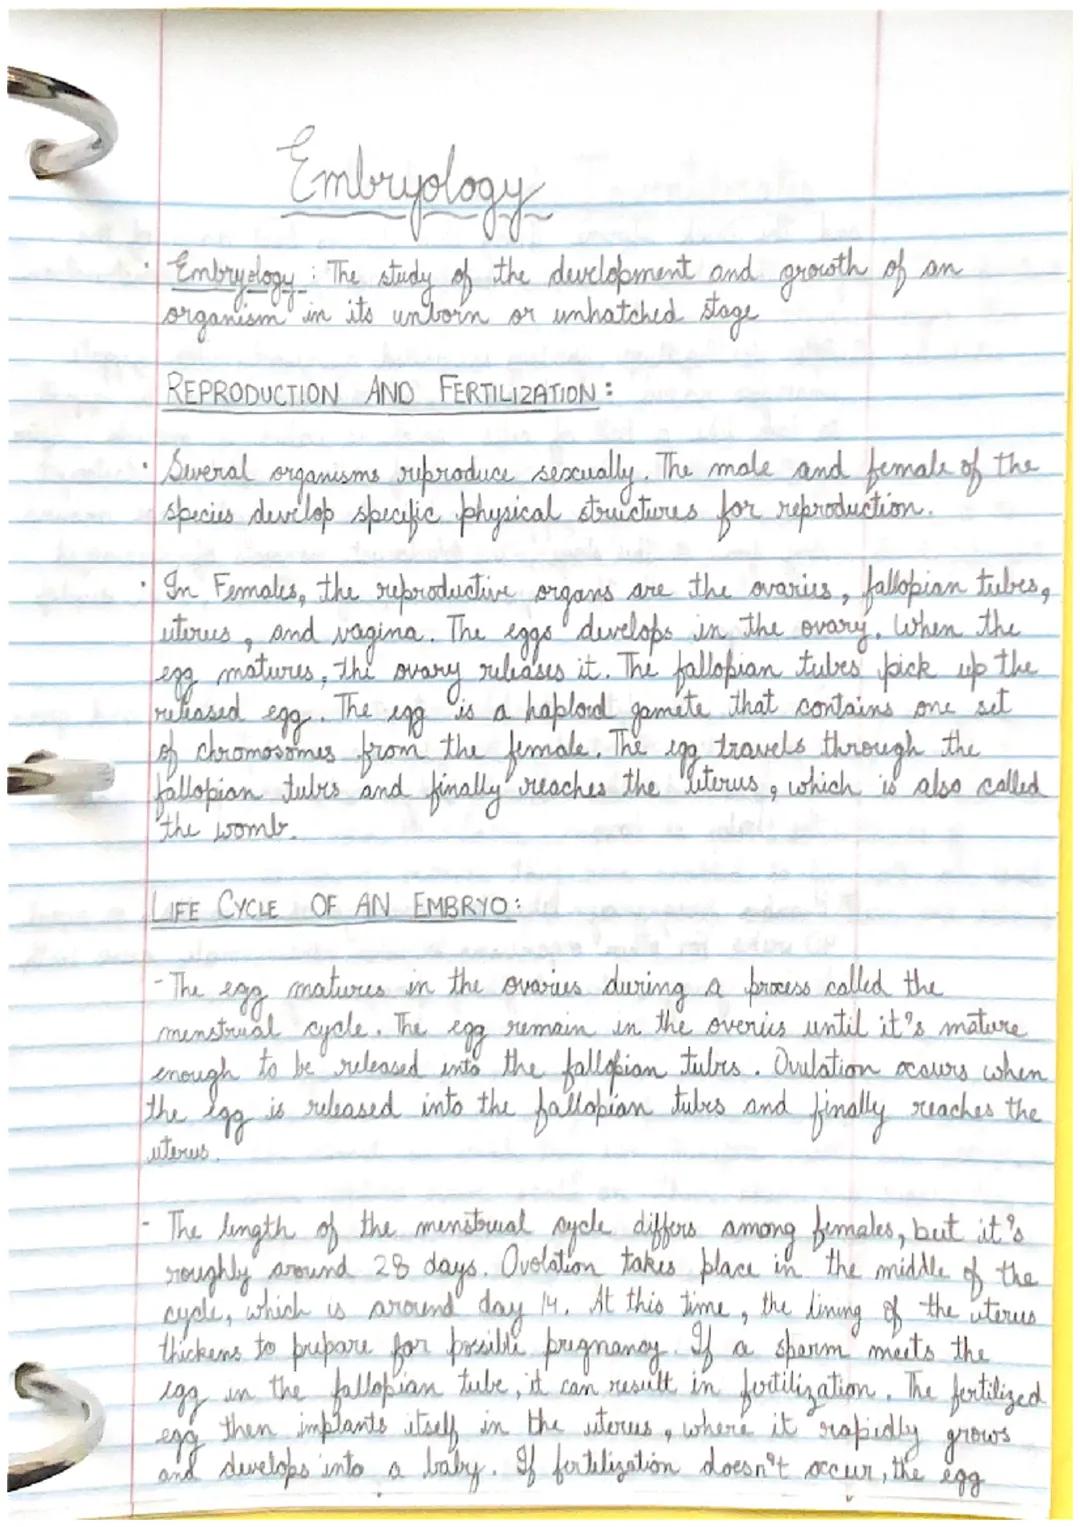 Embryology
· Embryology : The study of the development and growth of an
organism in its unborn or unhatched stage
REPRODUCTION AND FERTILIZATION :
· Several organisms reproduce sexually. The male and female of the
species develop specific physical structures for reproduction.
· In Females, the reproductive organs are the ovaries, fallopian tubes,
uterus, and vagina. The eggs develops in the ovary. When the
egg matures, the ovary releases it. The fallopian tubes pick up the
released egg. The egg is a haploid gamete that contains one set
of chromosomes from the female. The egg travels through the
fallopian tubes and finally reaches the uterus, which is also called
the womb.
LIFE CYCLE OF AN EMBRYO:
- The egg matures in the ovaries during a process called the
menstrual cycle. The egg remain in the overies until it's mature
enough to be released into the fallopian tubes. Ovulation occurs when
the egg is released into the fallopian tubes and finally reaches the
uterus.
- The length of the menstrual cycle differs among females, but it's
roughly around 28 days. Ovolation takes place in the middle of the
cycle, which is around day 14. At this time, the lining of the uterus
thickens to prepare for possible pregnancy. If a sperm meets the
egg in the fallopian tube, it can result in fertilization. The fertilized
egg then implants itself in the uterus, where it rapidly grows
and develops into a baby. If fertilization doesn't occur, the egg